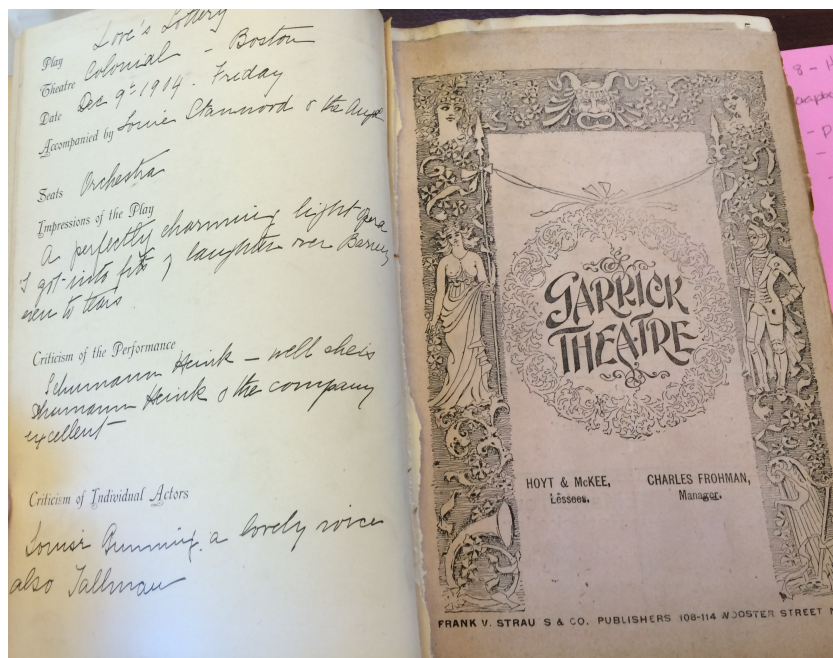 Play Love's Lottery
Theatre Colonial - Boston
Date Dec 9th 1904. Friday
Accompanied by Louise Stannord & the
Seats Orchestra
Impressions of the Play
A perfectly charming light opera
I got into fits of laughter over
even to tears.
Criticism of the Performance
Schumann Heink - well she is
Schumann Heink & the company
excellent
Criticism of Individual Actors
Louise Gunning, a lovely voice
also Tallman
GARRICK
THEATRE
HOYT & McKEE,
Lessees.
CHARLES FROHMAN,
Manager.
FRANK V. STRAU S & CO. PUBLISHERS 108-114 WOOSTER STREET N
8 - H
- P